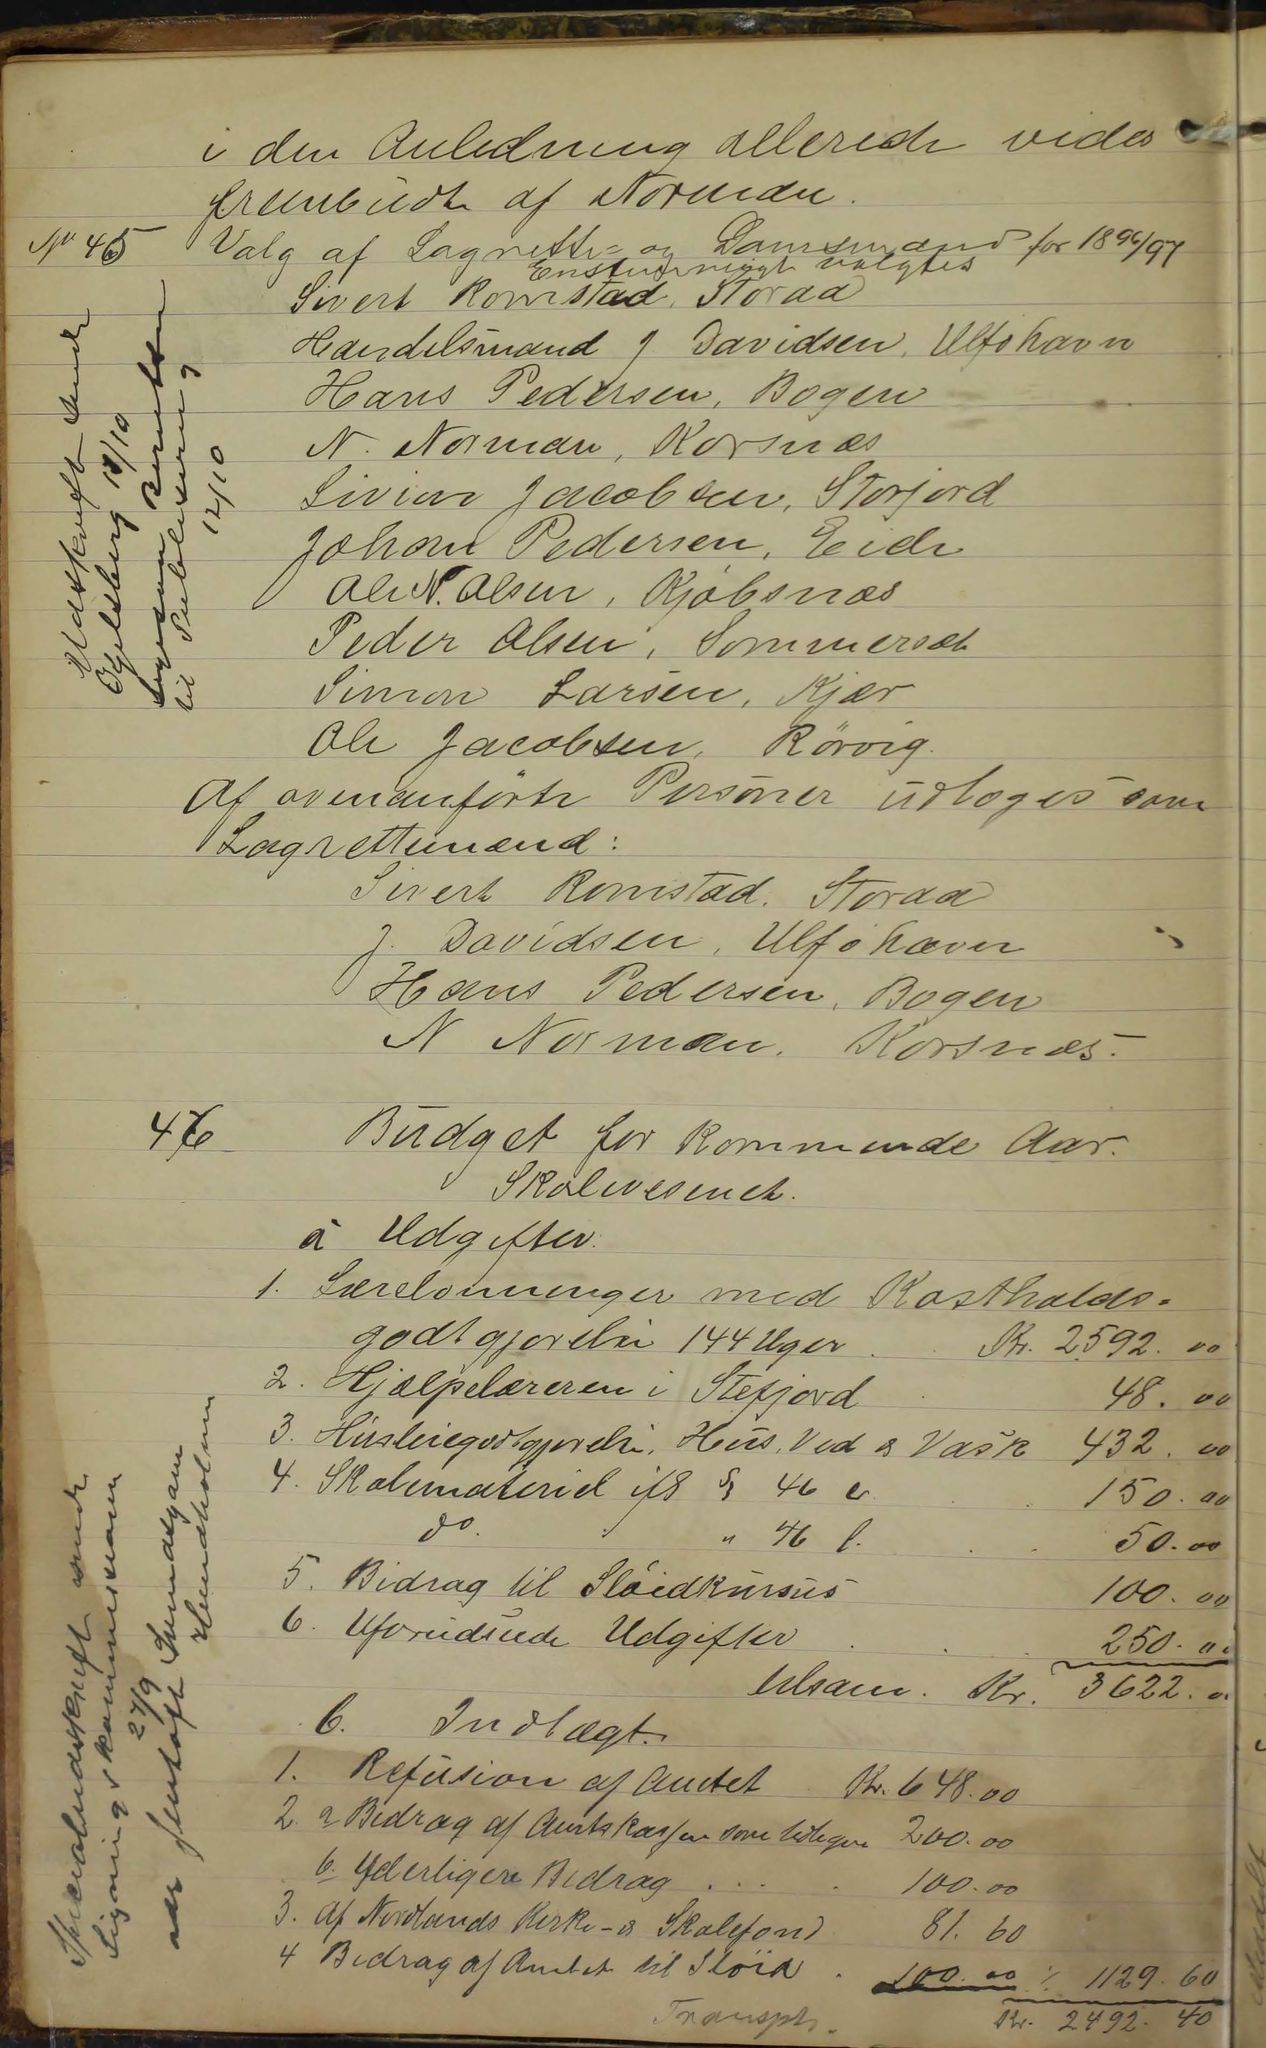 i den Anledning allerede vides
frembudte af Norman.
No 45 Valg af Lagrette- og Domsmænd for 1896/97
Enstemmigt valgtes
Sivert Romstad, Storaa
Handelsmand J Davidsen, Ulfshavn
Hans Pedersen, Bogen
N. Norman, Korsnæs
Sivion Jacobsen, Storjord
Johan Pedersen, Eide
Ole N. Olsen, Kjøbsnæs
Peder Olsen, Sommerset
Simon Larsen, Kjær
Ole Jacobsen, Rørvig.
Af ovenanførte Personer udtoges som
Lagrettemænd:
Sivert Romstad. Storaa
J. Davidsen, Ulfshavn
Hans Pedersen, Bogen
N Norman. Korsnæs.
Udskrift sendt
12/10
til Publisering
12/10
46 Budget for kommende Aar.
Skolevesenet.
a Udgifter.
1. Lærelønninger med Kostholds-
godtgjørelse 144 Uger . . Kr. 2592. 00
2. Hjælpelæreren i Stefjord . 48. 00
3. Husleiegodtgjørelse, Hus, Ved & Vask 432. 00
4. Skolemateriel ifl § 46 e . . 150. 00
do. " 46 f. . . 50. 00
5. Bidrag til Sløidkursus 100. 00
6. Uforudseede Udgifter . . . 250. 00
tilsam. Kr. 3622. 00
b. Indtægt.
1. Refusion af Amtet Kr. 648. 00
2. a Bidrag af Amtskassen som tidligere 200. 00
b. Yderligere Bidrag . . . . 100. 00
3. Af Nordlands Kirke- & Skolefond 81. 60
4 Bidrag af Amtet til Sløid . 100. 00 ٪ 1129. 60
Transpt. Kr. 2492. 40
Specialudskrift sendt
Ligningskommissionen
27/9